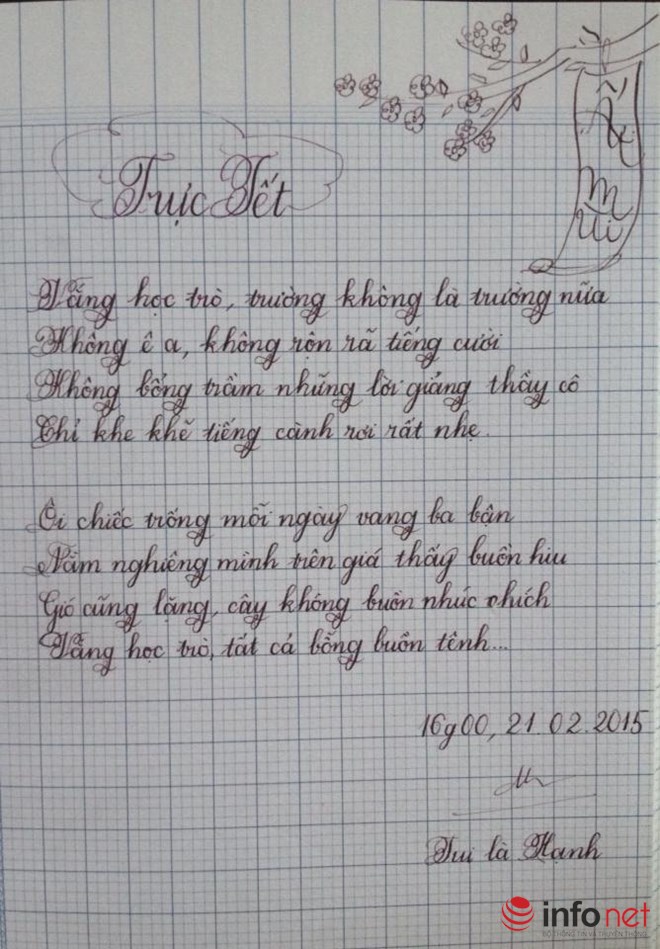 Ất
Mùi
Trực Tết
Vắng học trò, trường không là trường nữa
Không ê a, không rộn rã tiếng cười
Không bổng trầm những lời giảng thầy cô
Chỉ khe khẽ tiếng cành rơi rất nhẹ.
Ôi chiếc trống mỗi ngày vang ba bận
Nằm nghiêng mình trên giá thấy buồn hiu
Gió cũng lặng, cây không buồn nhúc nhích
Vắng học trò, tất cả bỗng buồn tênh...
16g00, 21.02.2015
Tui là Hạnh
infonet